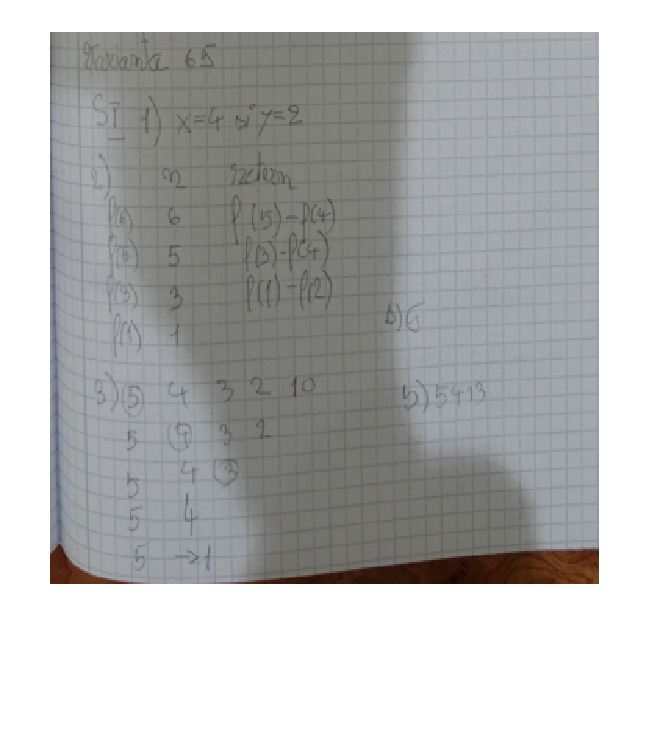 Varianta 65
SI 1) x=4 și y=2
2) n return
f(6) 6 f(5)-f(4)
f(5) 5 f(3)-f(4)
f(3) 3 f(1)-f(2)
f(1) 1
b) 6
3) 5 4 3 2 10
5) 5413
5 4 3 2
5 4 3
5 4
5 →1